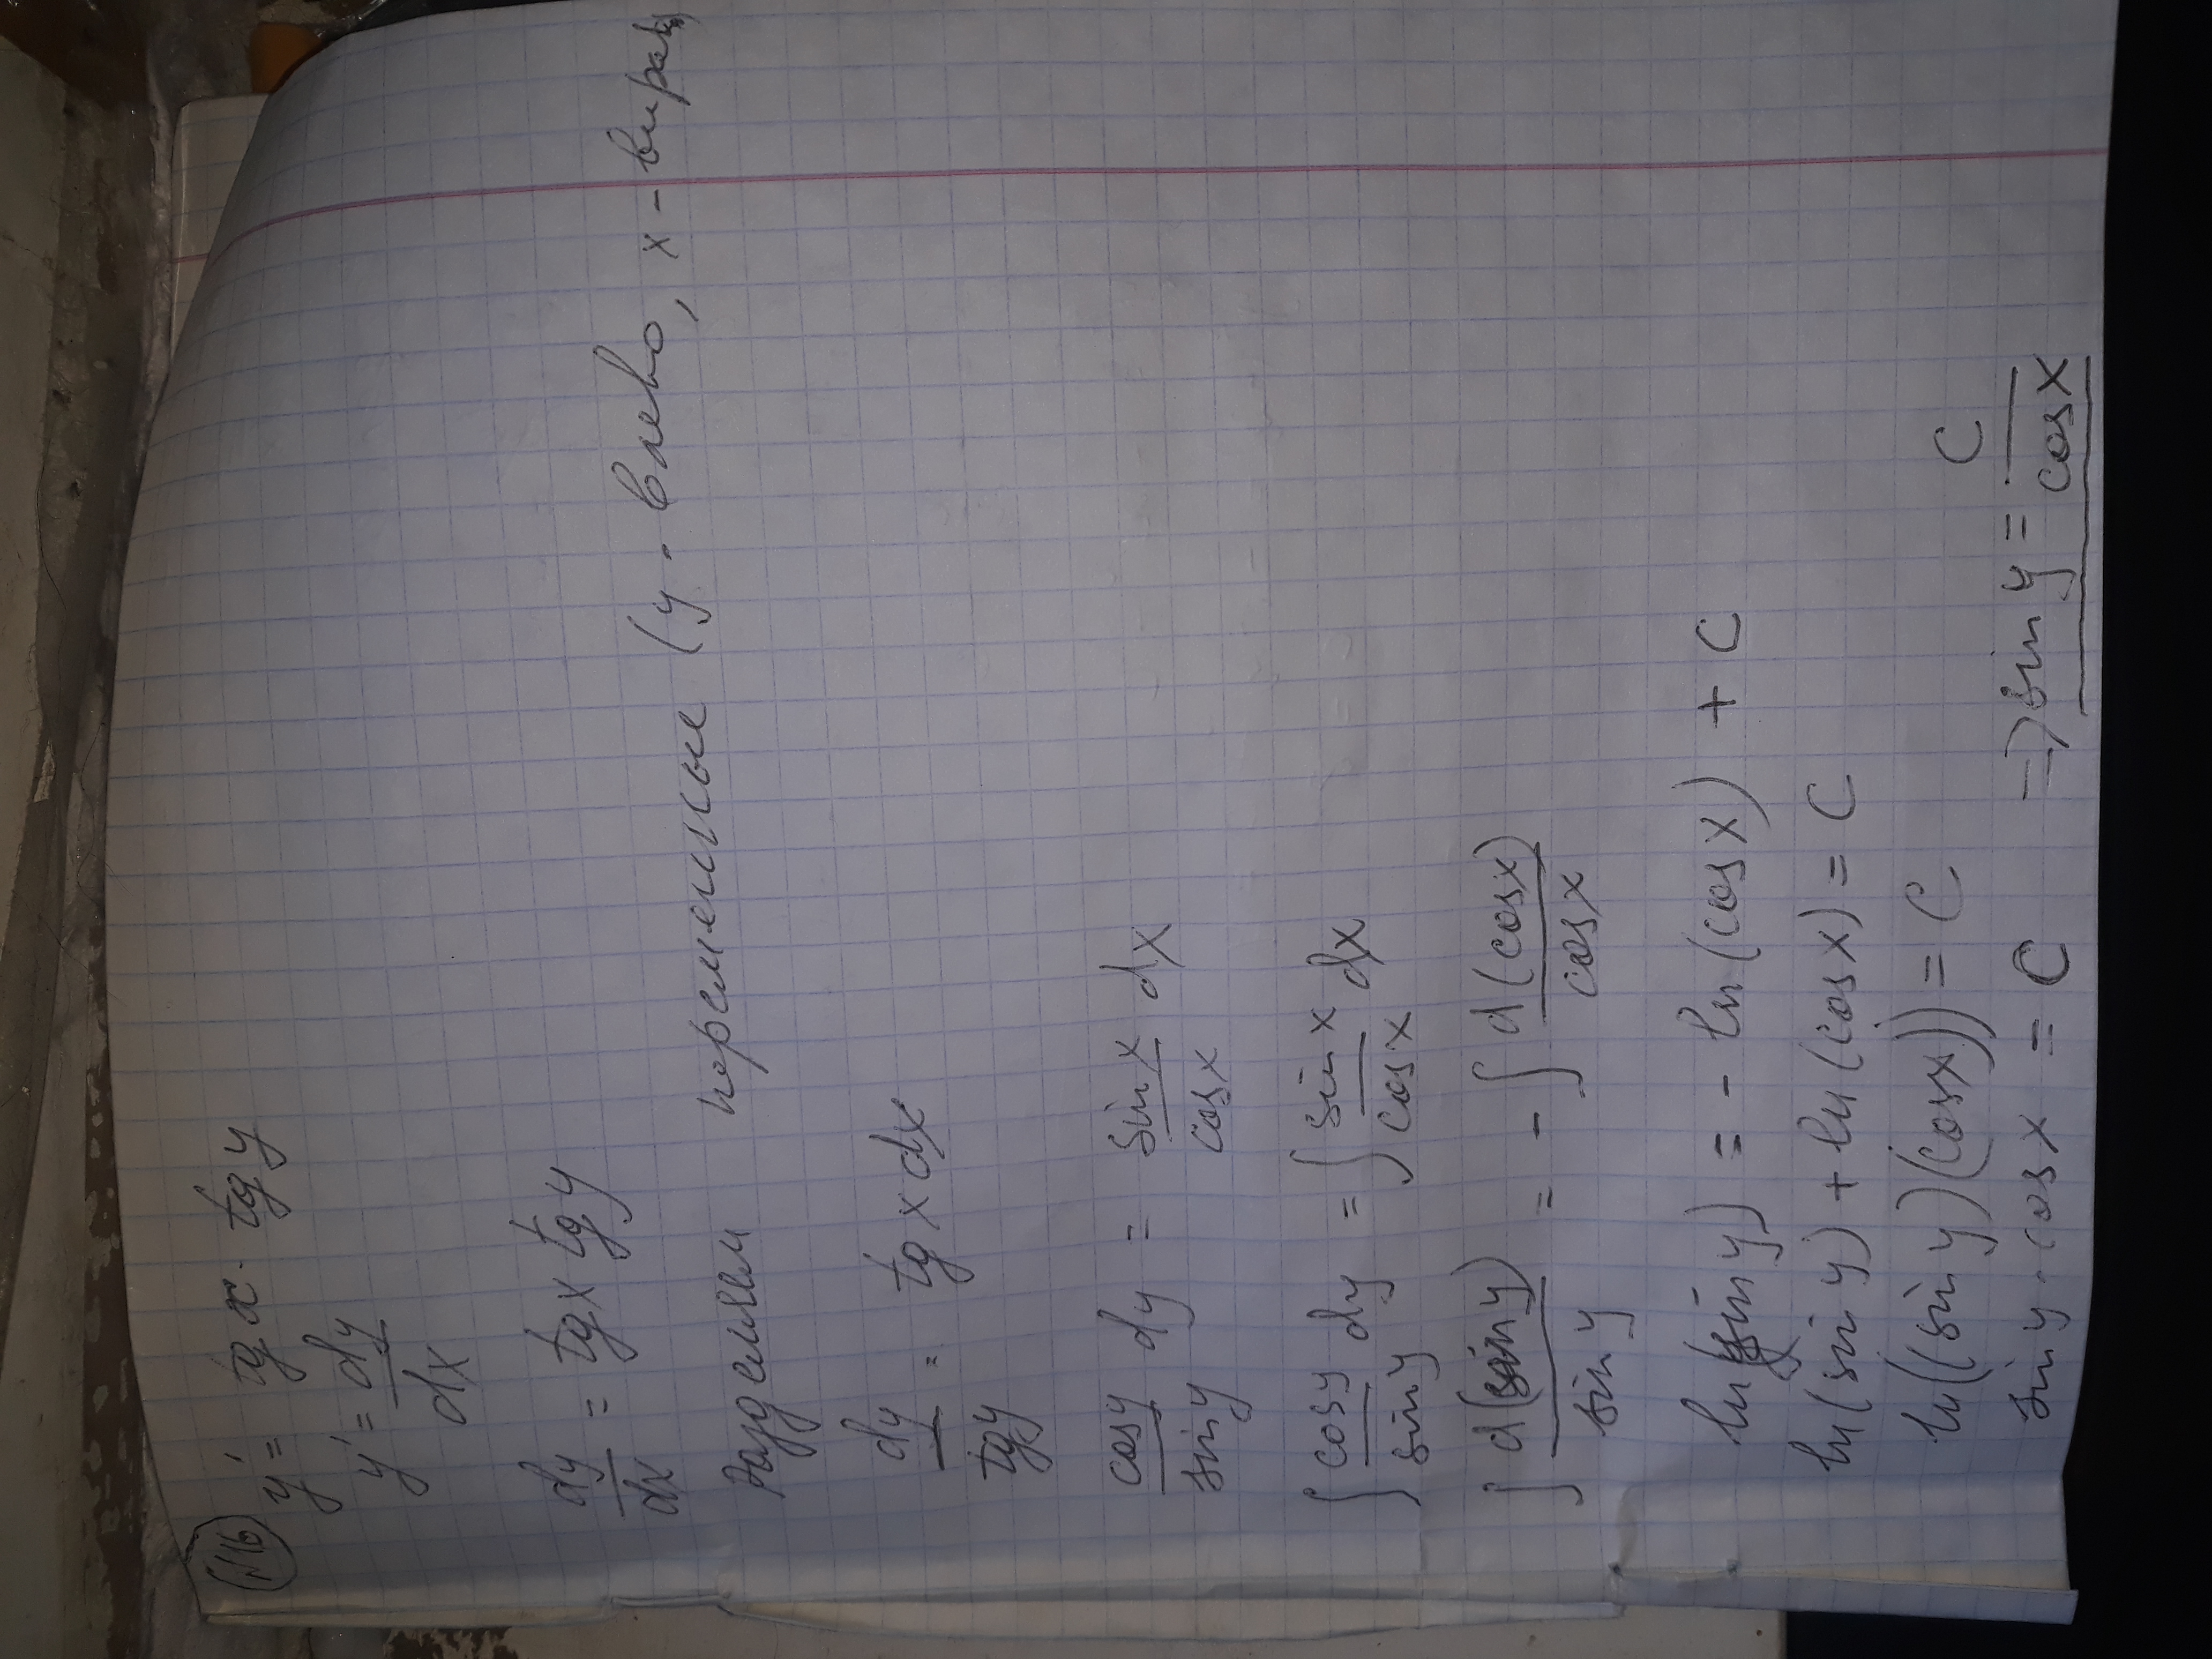 N16
y' = tg x · tg y
y' = dy/dx
dy/dx = tg x tg y
Разделим переменные (y - влево, x - вправо
dy/tgy = tg x dx
cosy/siny dy = sinx/cosx dx
∫ cosy/siny dy = ∫ sinx/cosx dx
∫ d(siny)/siny = - ∫ d(cosx)/cosx
ln(sin y) = - ln(cosx) + C
ln(sin y) + ln(cosx) = C
ln((sin y)(cosx)) = C
sin y · cos x = C => sin y = C/cosx